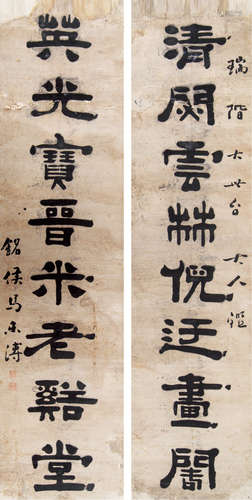 瑞階大世台大人鑑
清閟雲林倪迂畫閣
英光寶晉米老谿堂
銘侯馬溥